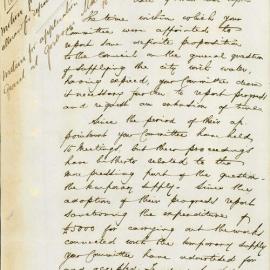 The time within which your
Committee were appointed to
report some definite proposition
to the Council on the general question
of supplying the city with water,
having expired, your Committee deem
it necessary further to report progress
and request an extension of time.
Since the period of their ap
pointment your Committee have held
10 Meetings, but their proceedings
have hitherto related to the
more pressing part of the question
the temporary supply. Since the
adoption of their progress report
sanctioning the expenditure of
£5000 for carrying out the works
connected with the temporary supply
your Committee have advertised for
and accepted